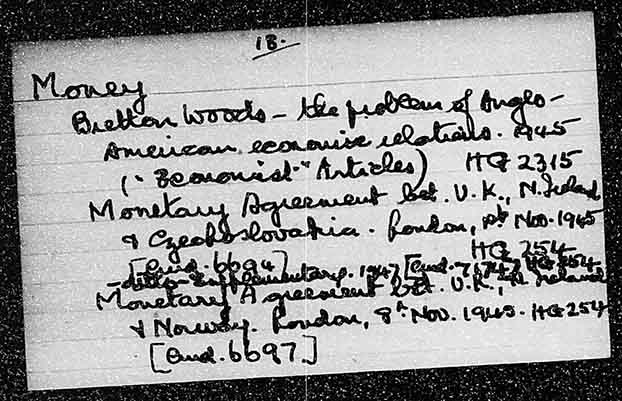 18.
Money
Bretton Woods - the problem of Anglo-
American economic relations. 1945
("Economist" Articles) HG 2315
Monetary Agreement bet. U.K., N. Ireland
& Czechoslovakia. London, 1st Nov. 1945
[Cmd. 6694] HG 254
- ditto - Supplementary. 1947 [Cmd. HG 254
Monetary Agreement bet. U.K., N. Ireland
& Norway. London, 8th Nov. 1945. HG 254
[Cmd. 6697]